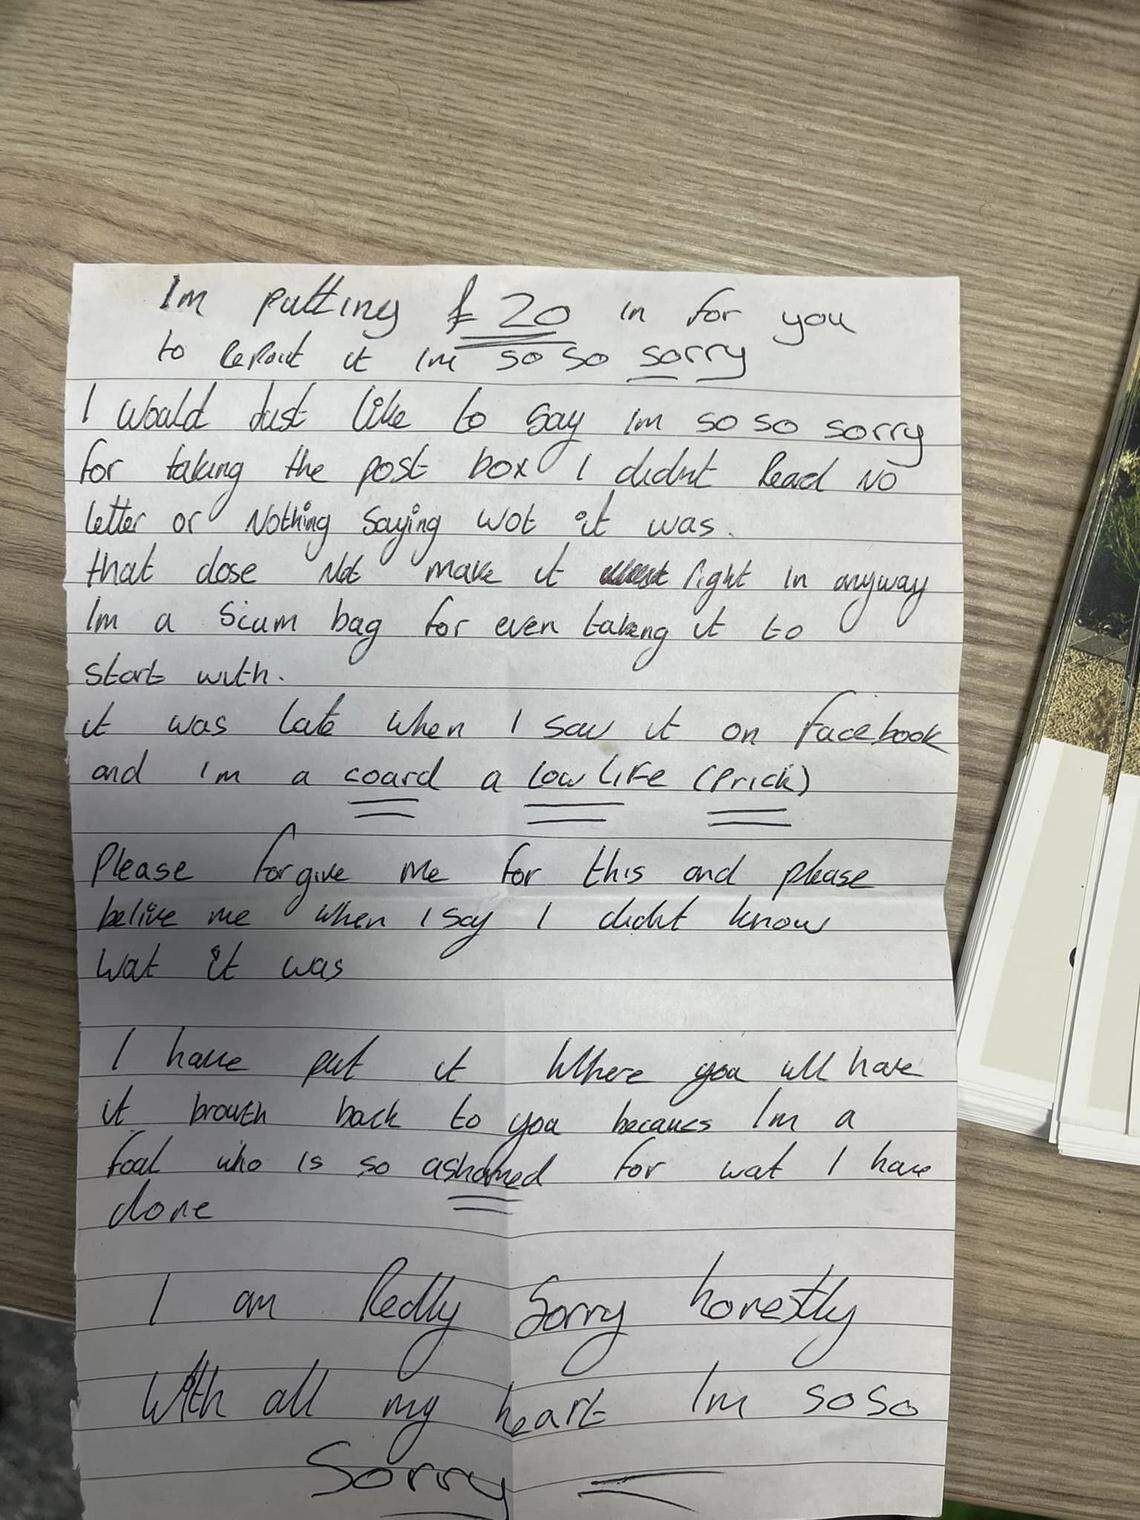 Im putting £20 in for you
to RePaut it Im so so sorry
I would Just like to say Im so so sorry
for taking the post box I didnt Read NO
letter or Nothing saying wot it was.
that dose Not make it right in anyway
Im a Scum bag for even taking it to
start with.
it was late when I saw it on Facebook
and Im a coard a low liFe (Prick)
Please forgive me for this and please
belive me when I say I didnt know
wat it was
I have put it Where you will have
it brouth back to you becaucs Im a
foal who is so ashamed for wat I have
done
I am Really Sorry honestly
With all my heart Im so so
Sorry